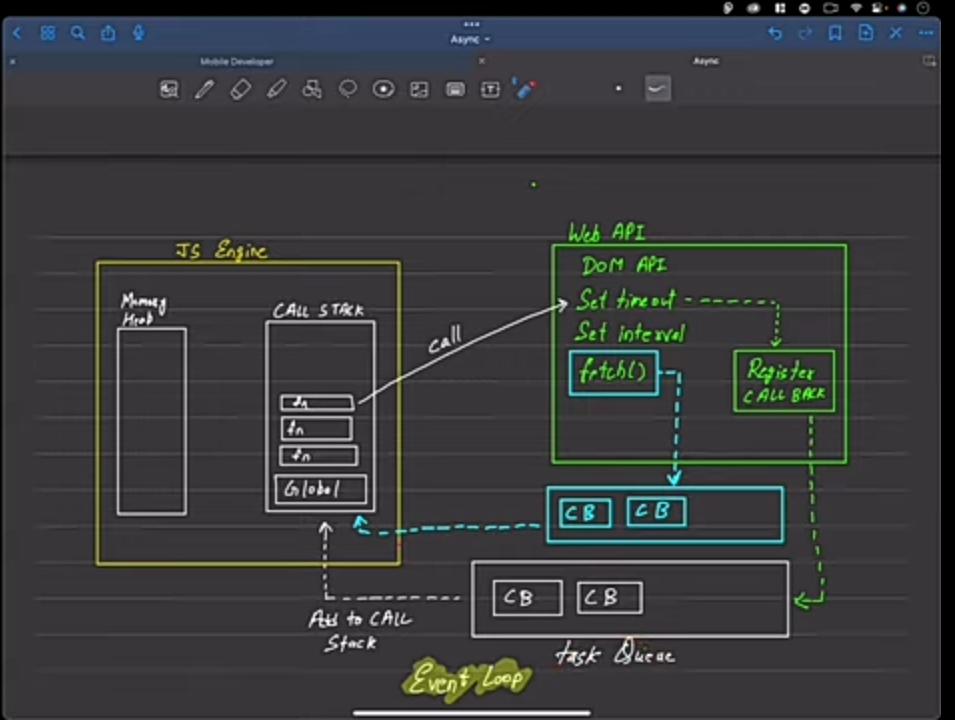 Async
Mobile Developer
Async
JS Engine
Memory
Heap
CALL STACK
fn
fn
fn
Global
call
Web API
DOM API
Set timeout
Set interval
fetch()
Register
CALL BACK
CB CB
CB CB
Add to CALL
Stack
task Queue
Event Loop